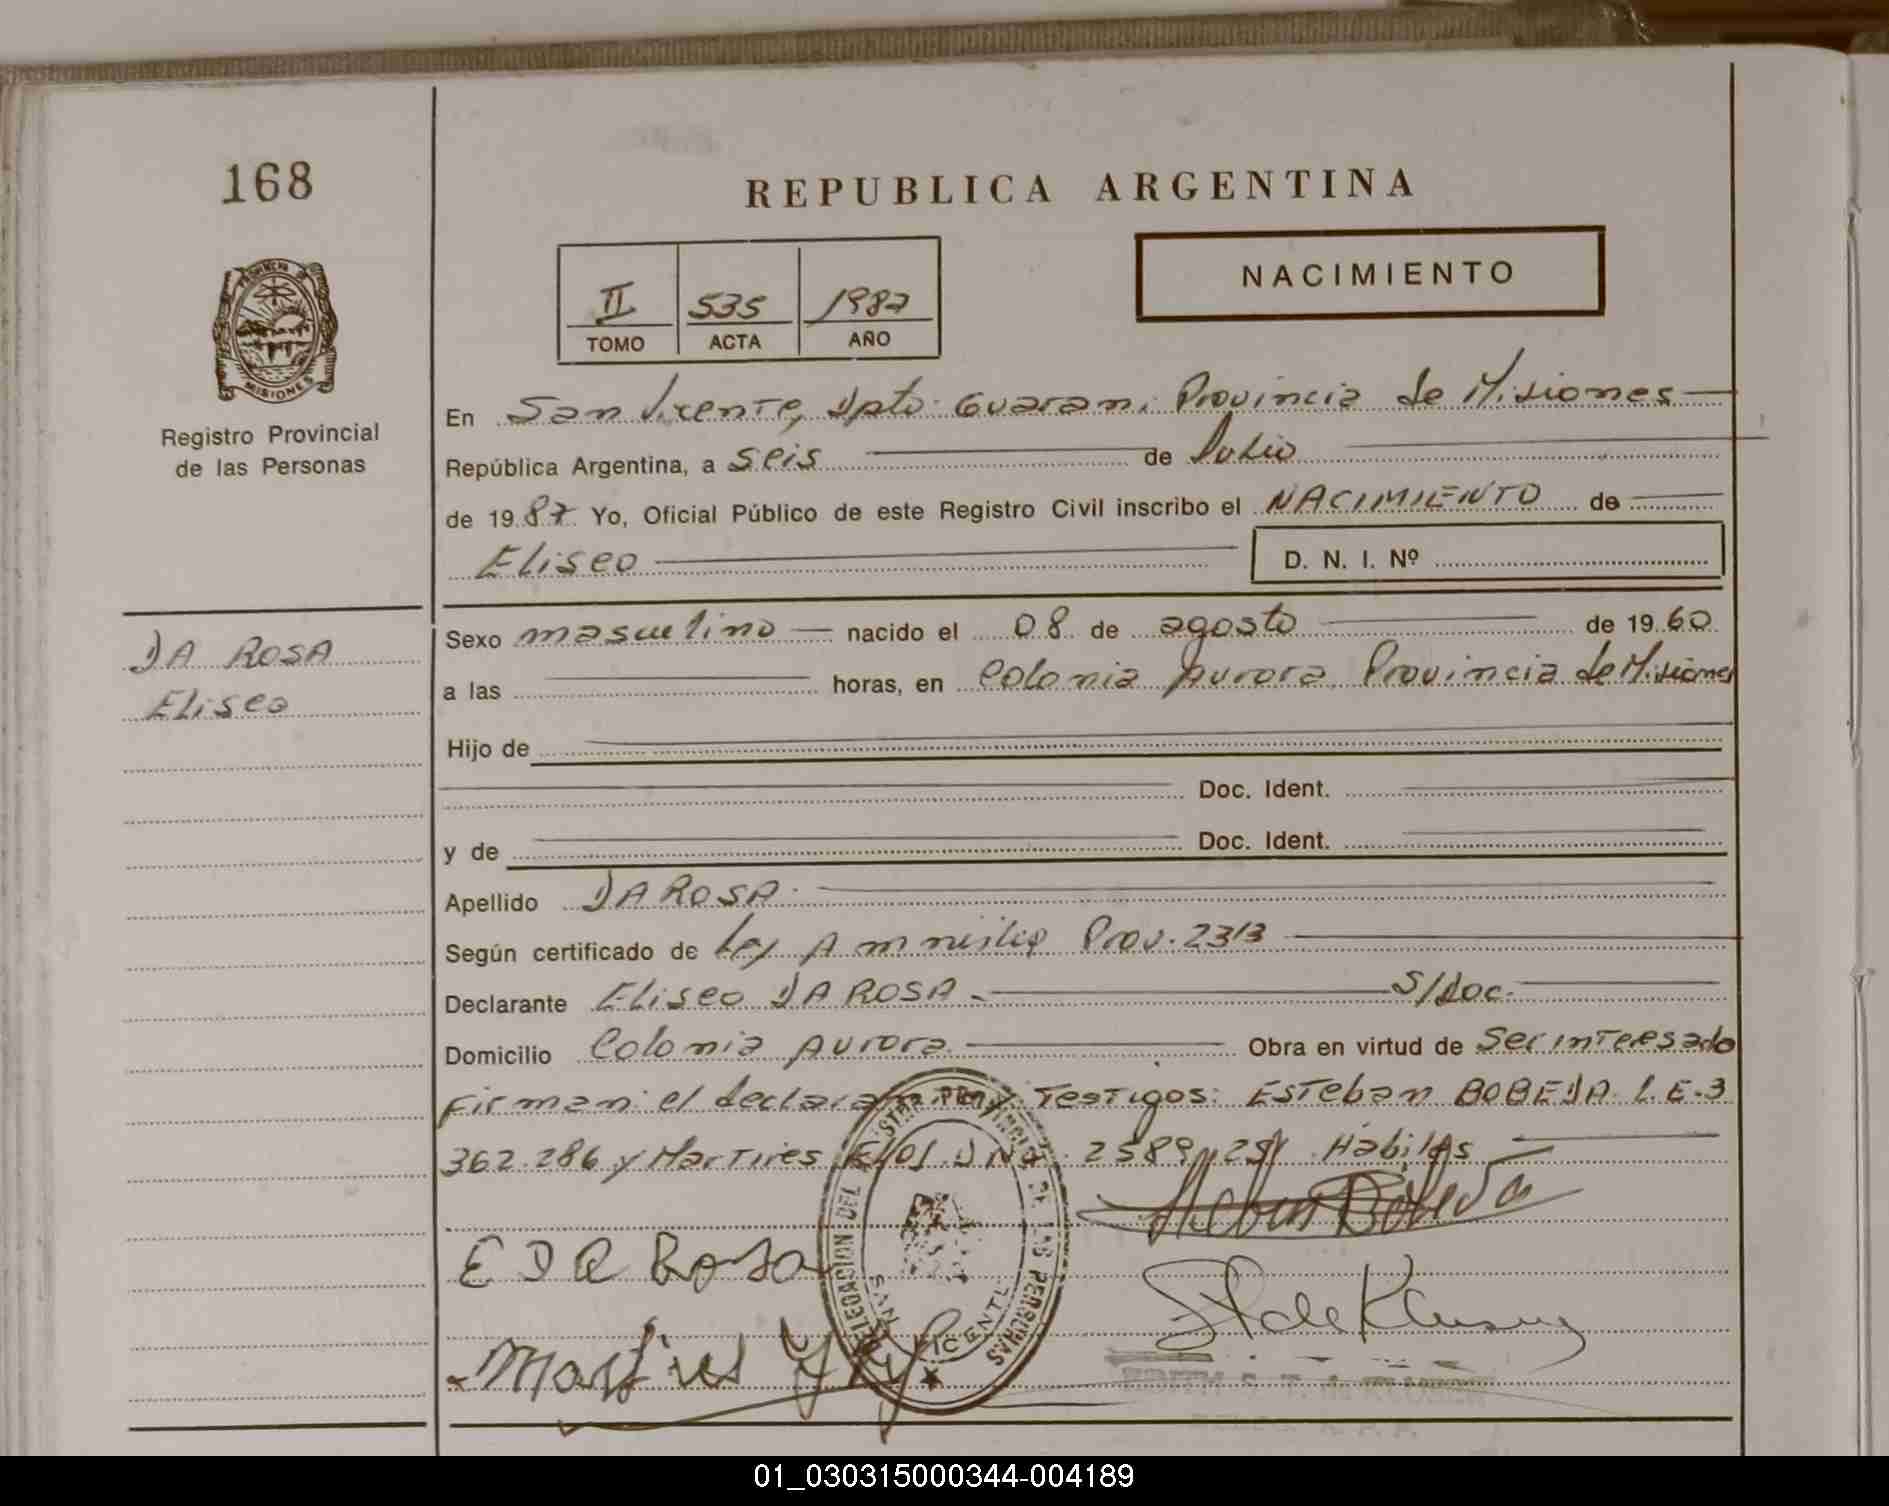 168
REPUBLICA ARGENTINA
NACIMIENTO
II 535 1987
TOMO ACTA AÑO
PROVINCIA DE
MISIONES
Registro Provincial
de las Personas
En San Vicente, Dpto. Guarani Provincia de Misiones
República Argentina, a seis de Julio
de 1987. Yo, Oficial Público de este Registro Civil inscribo el NACIMIENTO de
Eliseo D. N. I. Nº
DA ROSA
Eliseo
Sexo masculino nacido el 08 de agosto de 1960
a las horas, en Colonia Aurora Provincia de Misiones
Hijo de
Doc. Ident.
y de Doc. Ident.
Apellido DA ROSA
Según certificado de Ley Prov. 2313
Declarante Eliseo DA ROSA S/doc.
Domicilio Colonia Aurora Obra en virtud de ser interesado
Firman el Testigos: Esteban BOBEDA L.E. 3
362.286 y Martires 2589 Habiles
E DA Rosa
Martires
SAN VICENTE
DE LAS PERSONAS
01_030315000344-004189